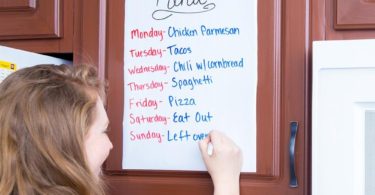 Menu
Monday- Chicken Parmesan
Tuesday- Tacos
Wednesday- Chili w/cornbread
Thursday- Spaghetti
Friday- Pizza
Saturday- Eat Out
Sunday- Leftover